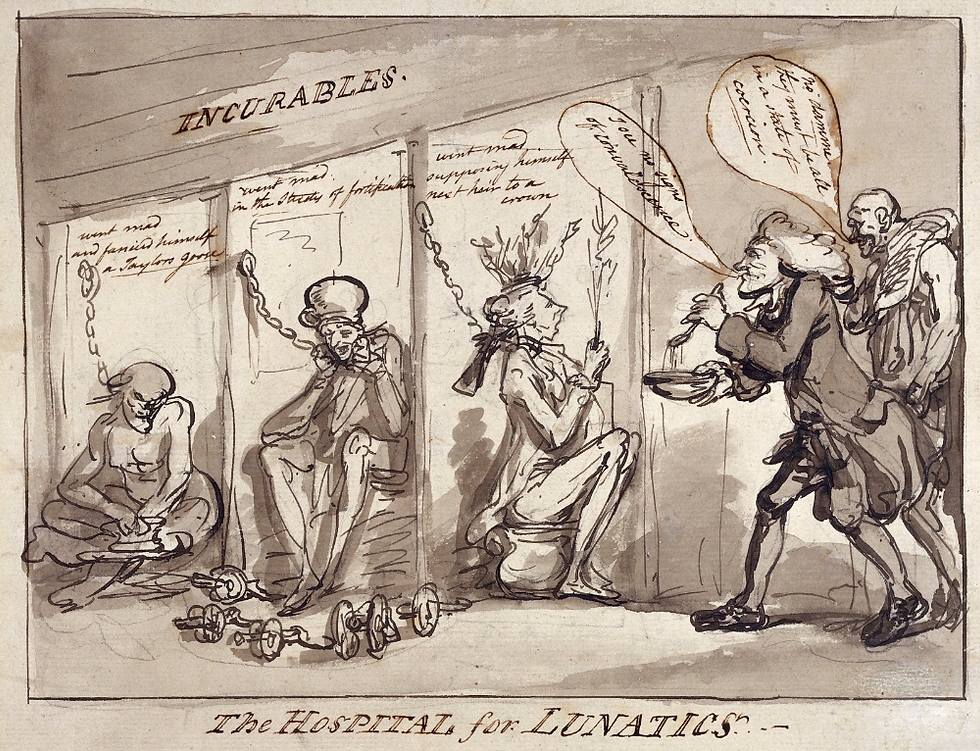 INCURABLES.
went mad
and fancied himself
a Taylors goose
went mad.
in the Study of fortification
went mad
supposing himself
next heir to a
crown
I see no signs
of convalescence.
no damme
they must be all
in a state of
coercion.
The HOSPITAL for LUNATICS. –